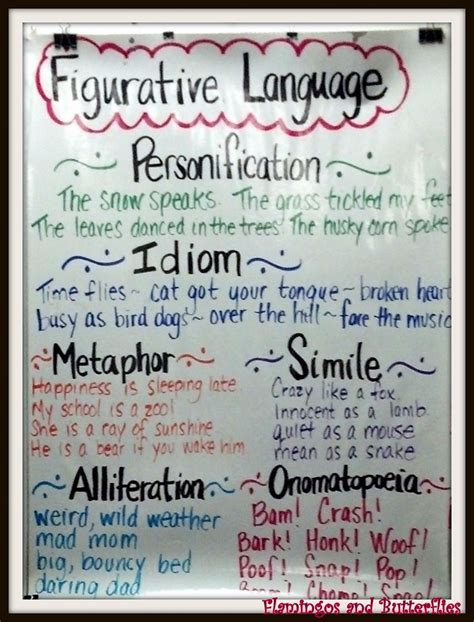 Figurative Language
Personification
The snow speaks. The grass tickled my feet
The leaves danced in the trees. The husky corn spoke
Idiom
Time flies ~ cat got your tongue ~ broken heart
busy as bird dogs ~ over the hill ~ face the music
Metaphor
Happiness is sleeping late
My school is a zoo!
She is a ray of sunshine
He is a bear if you wake him
Simile
Crazy like a fox
Innocent as a lamb
quiet as a mouse
mean as a snake
Alliteration
weird, wild weather
mad mom
big, bouncy bed
daring dad
Onomatopoeia
Bam! Crash!
Bark! Honk! Woof!
Poof! Snap! Pop!
Boom! Chomp! Snap!
Flamingos and Butterflies